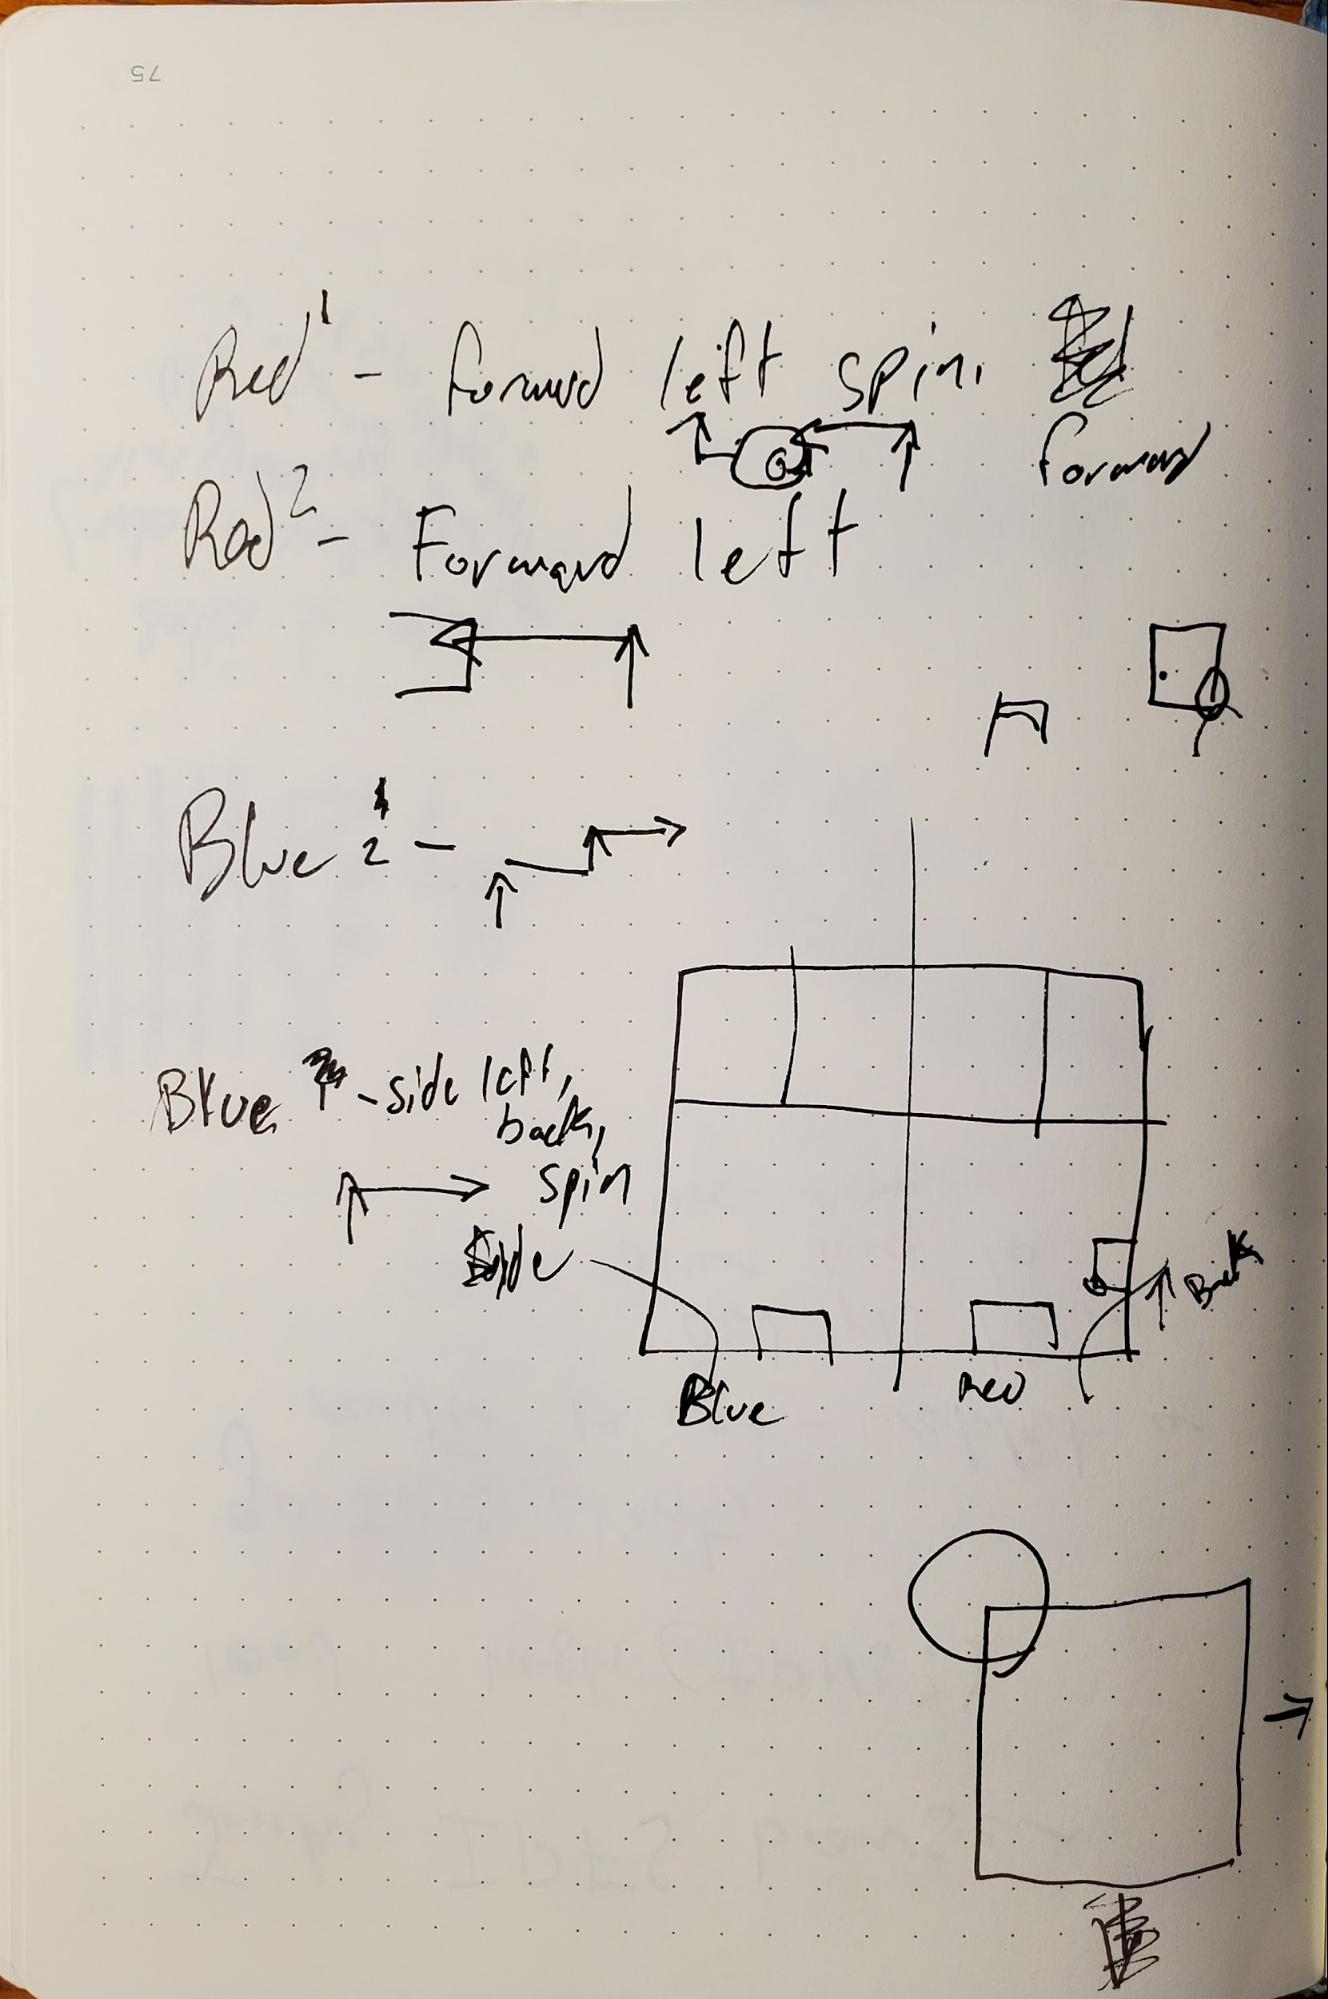 75
Red 1 - forward left spin.
forward
Red 2 - Forward left
Blue 2 -
Blue - side left,
back,
spin
Side
Back
Blue
Red